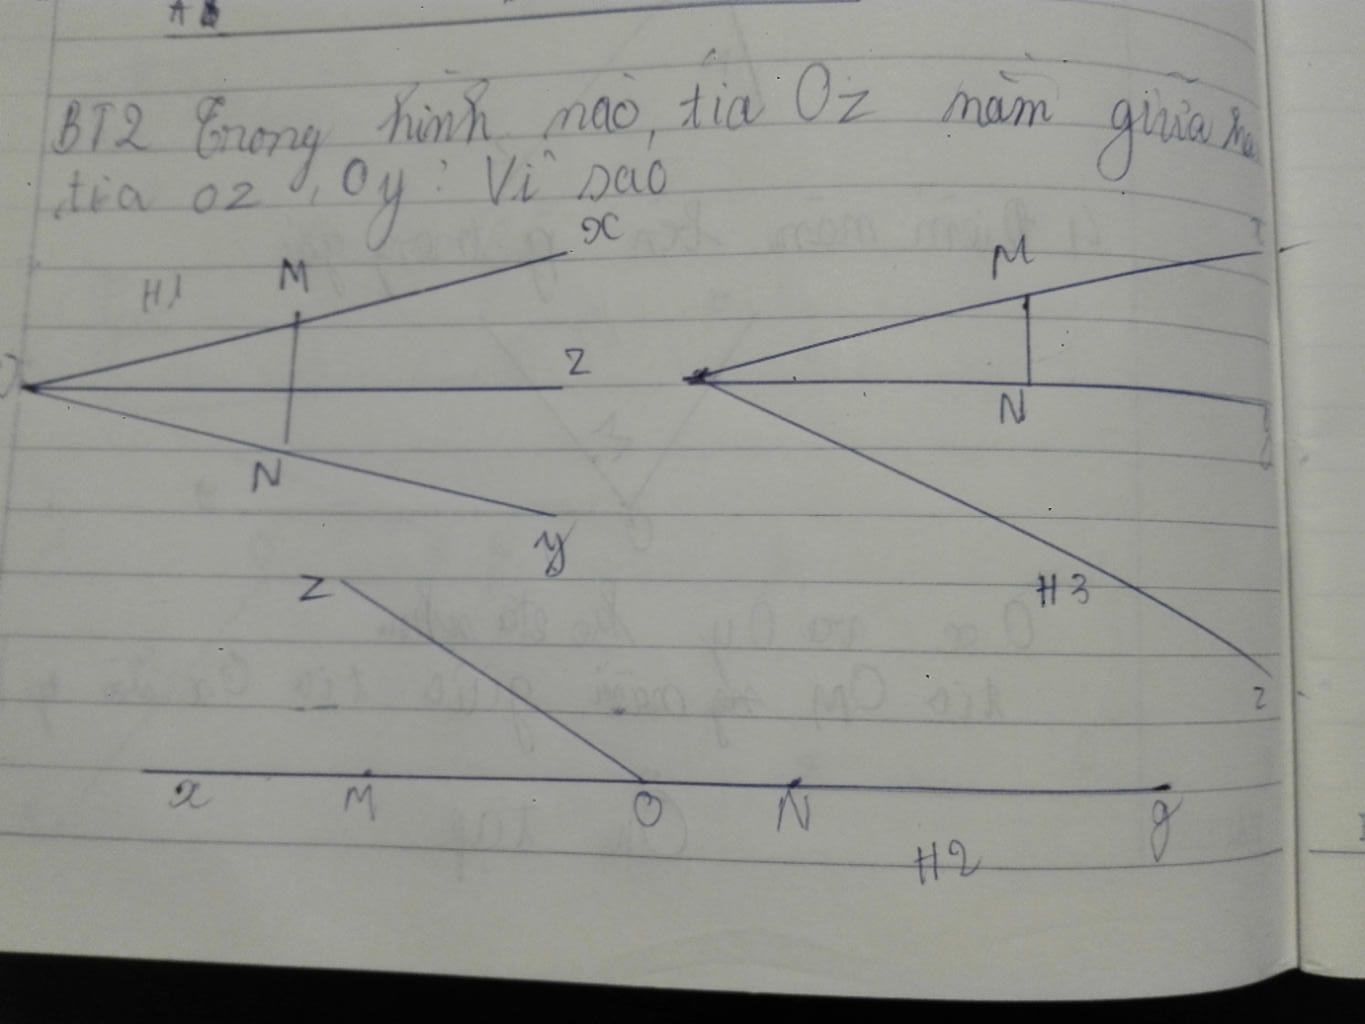 A B
BT2 Trong hình nào, tia Oz nằm giữa
tia oz, Oy : Vì sao
x
M
M
H1
z
O
N
N
y
z
H3
z
x M O N y
H2